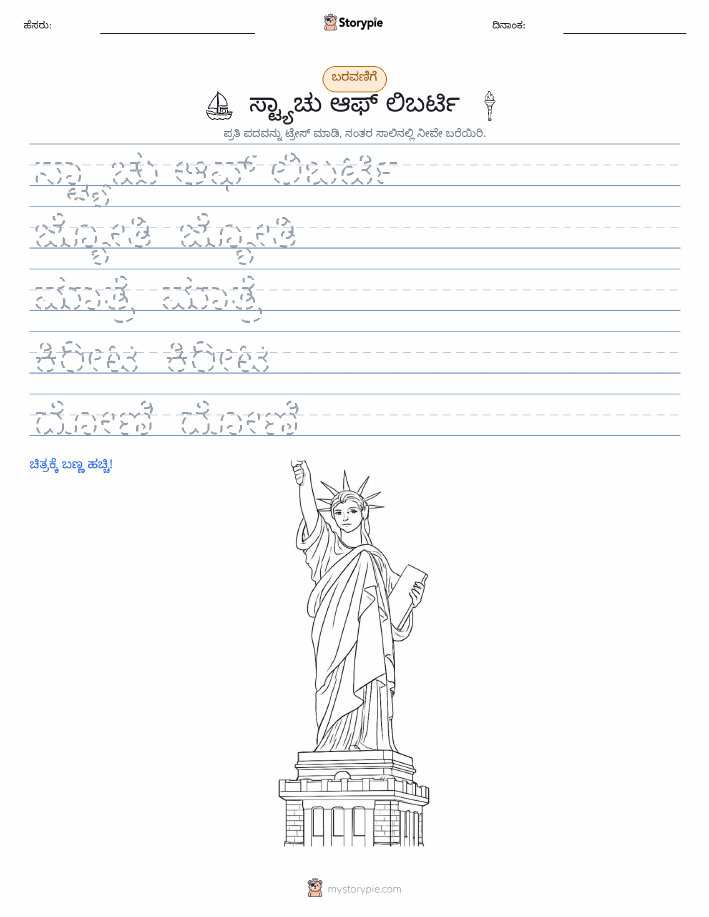 ಹೆಸರು:
Storypie
ದಿನಾಂಕ:
ಬರವಣಿಗೆ
ಸ್ಟ್ಯಾಚು ಆಫ್ ಲಿಬರ್ಟಿ
ಪ್ರತಿ ಪದವನ್ನು ಟ್ರೇಸ್ ಮಾಡಿ, ನಂತರ ಸಾಲಿನಲ್ಲಿ ನೀವೇ ಬರೆಯಿರಿ.
ಸ್ಟ್ಯಾಚು ಆಫ್ ಲಿಬರ್ಟಿ
ಜ್ಯೋತಿ ಜ್ಯೋತಿ
ಯಾತ್ರೆ ಯಾತ್ರೆ
ಕಿರೀಟ ಕಿರೀಟ
ದೋಣಿ ದೋಣಿ
ಚಿತ್ರಕ್ಕೆ ಬಣ್ಣ ಹಚ್ಚಿ!
mystorypie.com